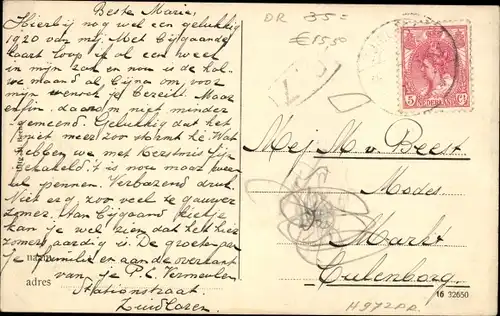 Beste Marie,
Hierbij nog wel een gelukkig
1920 van mij. Met bijgaande
kaart loop ik al een week
in mijn zak en nou is de
maand al bijna om voor
mijn wensch je bereikt. Maar
enfin. daarom niet minder
gemeend. Gelukkig dat het
niet meer zoo stormt hè. Wat
hebben we met Kerstmis fijn
geschakeld. 't is nou maar weer
pennen. Verbazend druk.
Niet erg zoo veel te gauwer
zomer. Aan bijgaand kiekje
kan je wel zien dat het hier
zomers aardig is. De groeten per
je familie en aan de overkant
van je P.C. Vermeulen
Stationstraat
Zuidlaren.
naam
adres
DR 35=
€15,50
5 NEDERLAND Ct
Mej. M. v. Beest
Modes
Markt
Culenborg.
16 32650
H972DR.